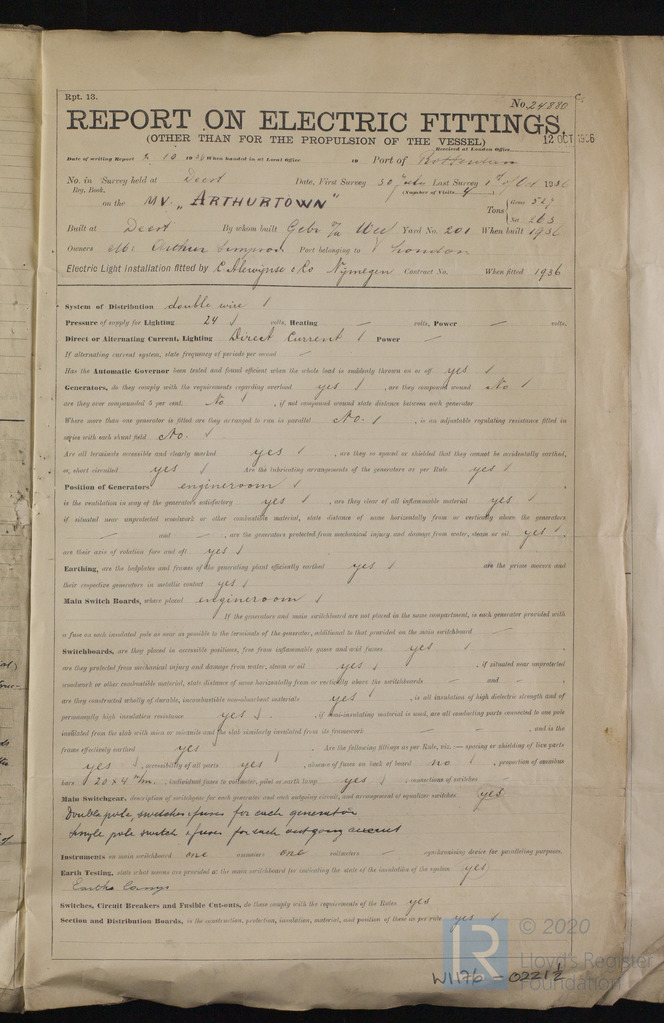 Rpt. 13.
No. 24880
REPORT ON ELECTRIC FITTINGS.
(OTHER THAN FOR THE PROPULSION OF THE VESSEL)
Received at London Office 12 OCT 1936
Date of writing Report 8. 10 1936 When handed in at Local Office 19 Port of Rotterdam
No. in Survey held at Deest Date, First Survey 30 Last Survey 1936
Reg. Book. (Number of Visits 4)
on the MV. "ARTHURTOWN" Tons Gross 527
Net 263
Built at Deest By whom built Gebr Yard No. 201 When built 1936
Owners Arthur Port belonging to London
Electric Light Installation fitted by C. Alewijnse & Co Nijmegen Contract No. When fitted 1936
System of Distribution double wire
Pressure of supply for Lighting 24 volts, Heating — volts, Power — volts,
Direct or Alternating Current, Lighting Direct Current Power —
If alternating current system, state frequency of periods per second —
Has the Automatic Governor been tested and found efficient when the whole load is suddenly thrown on or off yes
Generators, do they comply with the requirements regarding overload yes , are they compound wound No
are they over compounded 5 per cent. No , if not compound wound state distance between each generator
Where more than one generator is fitted are they arranged to run in parallel No. , is an adjustable regulating resistance fitted in
series with each shunt field No.
Are all terminals accessible and clearly marked yes , are they so spaced or shielded that they cannot be accidentally earthed,
or, short circuited yes Are the lubricating arrangements of the generators as per Rule yes
Position of Generators engineroom
is the ventilation in way of the generators satisfactory yes , are they clear of all inflammable material yes
if situated near unprotected woodwork or other combustible material, state distance of same horizontally from or vertically above the generators
— and — , are the generators protected from mechanical injury and damage from water, steam or oil yes
are their axis of rotation fore and aft yes
Earthing, are the bedplates and frames of the generating plant efficiently earthed yes are the prime movers and
their respective generators in metallic contact yes
Main Switch Boards, where placed engineroom
If the generators and main switchboard are not placed in the same compartment, is each generator provided with
a fuse on each insulated pole as near as possible to the terminals of the generator, additional to that provided on the main switchboard —
Switchboards, are they placed in accessible positions, free from inflammable gases and acid fumes yes
are they protected from mechanical injury and damage from water, steam or oil yes , if situated near unprotected
woodwork or other combustible material, state distance of same horizontally from or vertically above the switchboards — and —
are they constructed wholly of durable, incombustible non-absorbent materials yes , is all insulation of high dielectric strength and of
permanently high insulation resistance yes , if non-insulating material is used, are all conducting parts connected to one pole
insulated from the slab with mica or micanite and the slab similarly insulated from its framework — , and is the
frame effectively earthed yes . Are the following fittings as per Rule, viz.:— spacing or shielding of live parts
yes , accessibility of all parts yes , absence of fuses on back of board no , proportion of omnibus
bars 20 x 4 m/m. , individual fuses to voltmeter, pilot or earth lamp yes , connections of switches —
Main Switchgear, description of switchgear for each generator and each outgoing circuit, and arrangement of equalizer switches (yes)
Double pole, switches & fuses for each generator
Single pole switch & fuses for each outgoing circuit
Instruments on main switchboard one ammeters one voltmeters — synchronising device for paralleling purposes.
Earth Testing, state what means are provided at the main switchboard for indicating the state of the insulation of the system (yes)
Earth Lamps
Switches, Circuit Breakers and Fusible Cut-outs, do these comply with the requirements of the Rules yes
Section and Distribution Boards, is the construction, protection, insulation, material, and position of these as per rule yes
© 2020
Lloyd's Register
Foundation
W1176-0221½